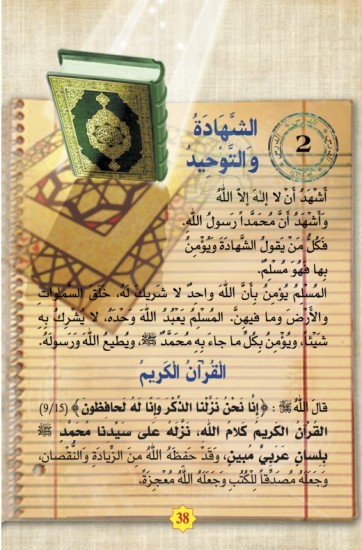 2
الشَّهَادَةُ
وَالتَّوْحِيدُ
أَشْهَدُ أَنْ لا إِلٰهَ إِلاَّ اللّٰهُ
وَأَشْهَدُ أَنَّ مُحَمَّداً رَسُولُ اللّٰهِ.
فَكُلُّ مَنْ يَقُولُ الشَّهَادَةَ وَيُؤْمِنُ
بِها فَهُوَ مُسْلِمٌ.
المُسْلِمُ يُؤْمِنُ بِأَنَّ اللّٰهَ واحِدٌ لا شَرِيكَ لَهُ، خَلَقَ السَّمٰوَاتِ
وَالأَرْضَ وَما فِيهِنَّ. المُسْلِمُ يَعْبُدُ اللّٰهَ وَحْدَهُ، لا يُشْرِكُ بِهِ
شَيْئاً، وَيُؤْمِنُ بِكُلِّ ما جاءَ بِهِ مُحَمَّدٌ ﷺ، وَيُطِيعُ اللّٰهَ وَرَسُولَهُ.
القُرْآنُ الكَرِيمُ
قالَ اللّٰهُ : ﴿إِنَّا نَحْنُ نَزَّلْنَا الذِّكْرَ وَإِنَّا لَهُ لَحافِظُونَ﴾ (9/15)
القُرْآنُ الكَرِيمُ كَلامُ اللّٰهِ، نَزَّلَهُ عَلى سَيِّدِنا مُحَمَّدٍ ﷺ
بِلِسانٍ عَرَبِيٍّ مُبِينٍ، وَقَدْ حَفِظَهُ اللّٰهُ مِنَ الزِّيادَةِ وَالنُّقْصَانِ،
وَجَعَلَهُ مُصَدِّقاً لِلْكُتُبِ وَجَعَلَهُ اللّٰهُ مُعْجِزَةً.
38